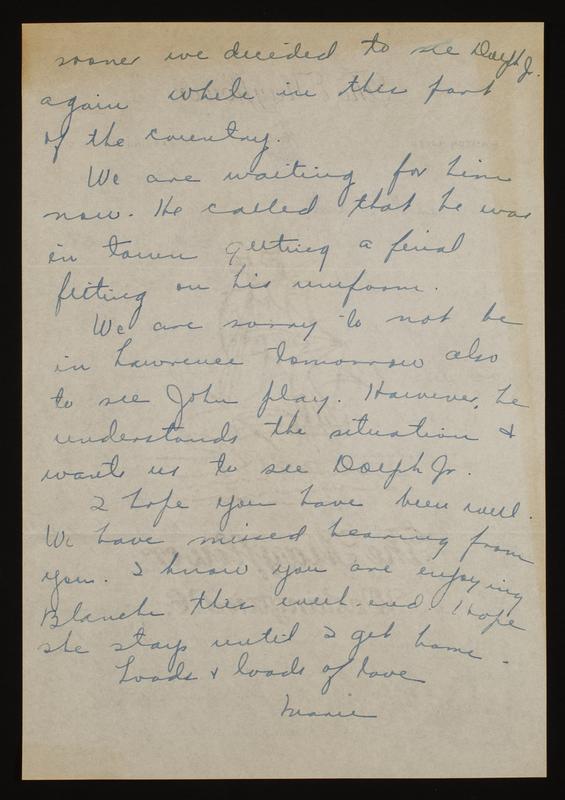 sooner we decided to see Dolph Jr.
again while in this part
of the country.
We are waiting for him
now. He called that he was
in town getting a final
fitting on his uniform.
We are sorry to not be
in Lawrence tomorrow also
to see John play. However, he
understands the situation &
wants us to see Dolph Jr.
I hope you have been well.
We have missed hearing from
you. I know you are enjoying
Blanch this week-end I hope
she stays until I get home.
Loads & loads of love
Marie